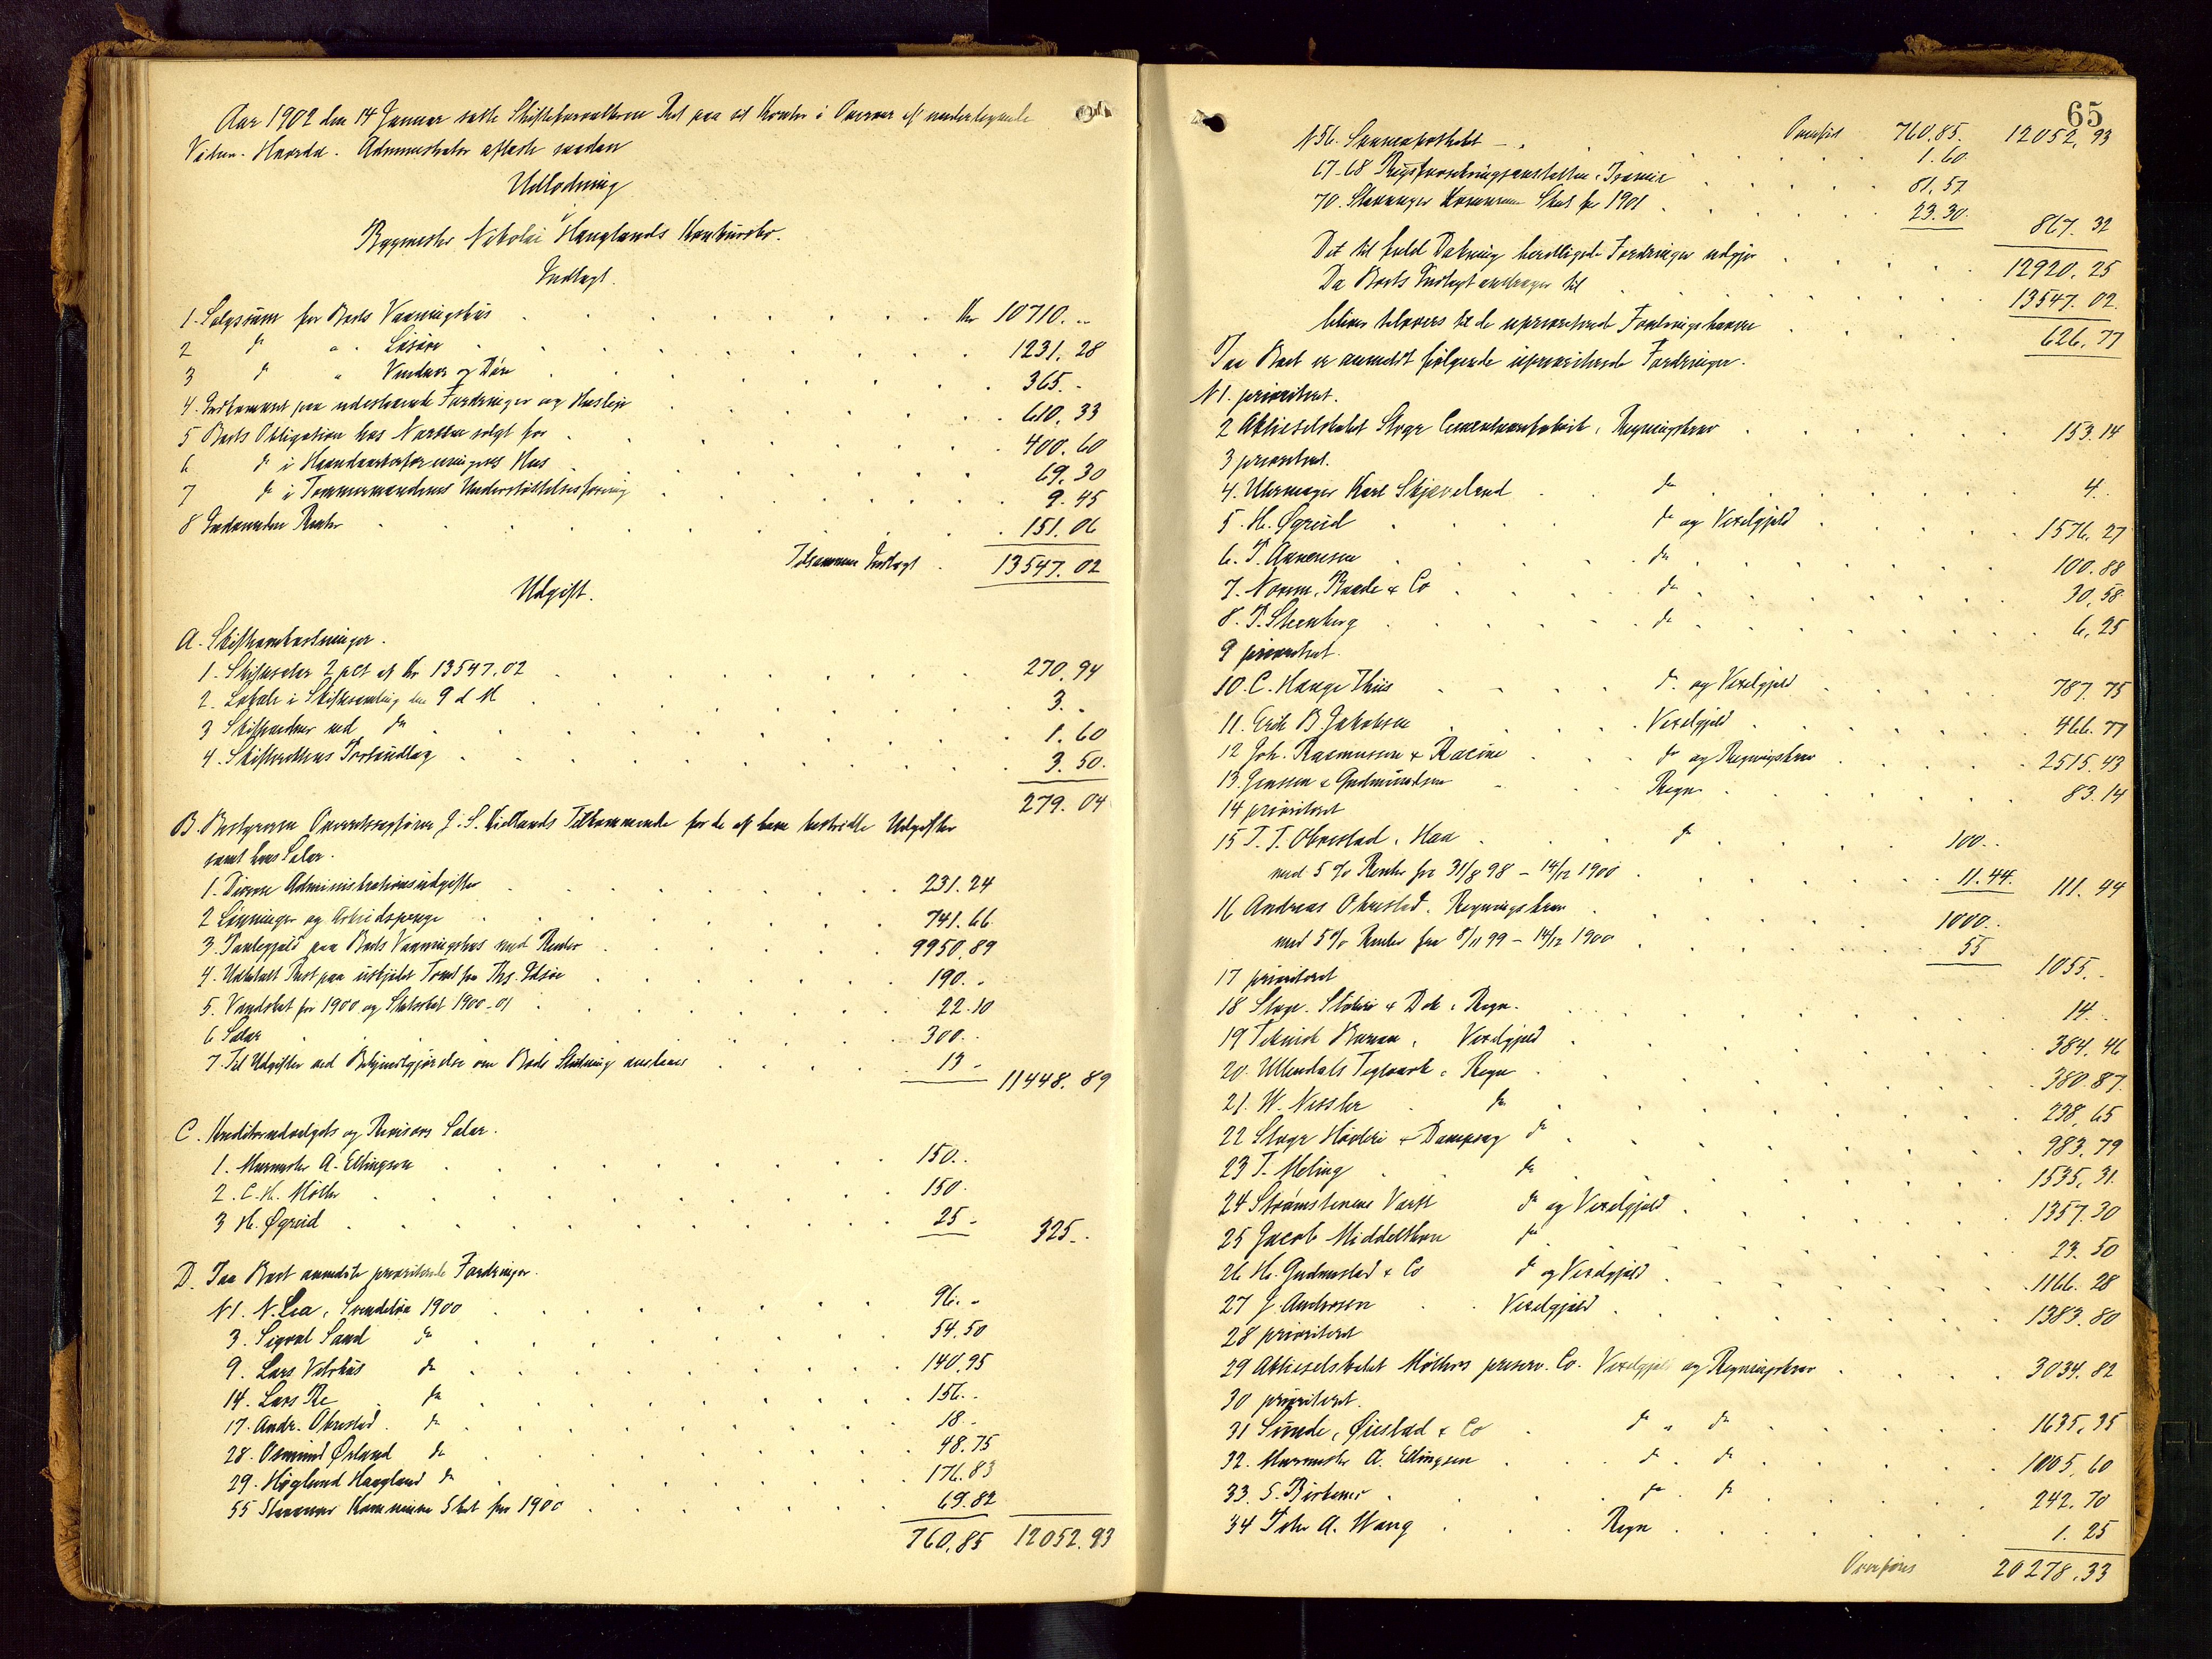 Aar 1902 den 14 Januar satte Skifteforvalteren Ret paa sit Kontor i Overvær af undertegnede
Vidner. Hvorda. Administrator afsagde saadan
Udlodning
i
Bygmester Nikolai Hauglands Konkursbo.
Indtægt.
1. Salgssum for Boets Vaaningshus Kr 10710. -
2 do " Løsøre 1231. 28
3 do " Vinduer og Døre 365. -
4. Indkommet paa udestaaende Fordringer og Husleje 610. 33
5 Boets Obligation hos Narsten solgt for 400. 60
6 do i Haandværkerforeningens Hus 69. 30
7 do i Tømmermændenes Understøttelsesforening 9. 45
8 Indvundne Renter 151. 06
Tilsammen Indtægt 13547. 02
Udgift.
A. Skifteomkostninger.
1. Skiftesalær 2 pct af Kr. 13547. 02 270. 94
2. Lokale i Skiftesamling den 9 d M 3. -
3 Skiftevidner ved do 1. 60
4. Skifterettens Protokudlæg 3. 50.
279. 04
B. Bestyreren Overretssagfører J. S. Kiellands Tilkommende for de af ham bestridte Udgifter
samt hans Salær.
1. Diverse Administrationsudgifter 231. 24
2 Lønninger og Arbeidspenge 741. 66
3. Pantegjæld paa Boets Vaaningshus med Renter 9950. 89
4. Udbetalt Rest paa uskjødet Tomt fra Ths. Edsøe 190. -
5. Vandskat for 1900 og Statsskat 1900-01 22. 10
6 Salær 300. -
7. Til Udgifter ved Bekjendtgjørelse om Boets Slutning ansættes 13 - 11448. 89
C. Kreditorudvalgets og Revisors Salær.
1. Murmester A. Ellingsen 150. -
2. C. H. Møller 150.
3 H. Øgreid 25 - 325. -
D. I Boet anmeldte prioriterede Fordringer.
N 1. N. Lea, Svendeløn 1900 96. -
3. Sigval Sand do 54. 50
9. Lars Vetrhus do 140. 95
14. Lars Re do 156. -
17. Andr. Obrestad. do 18. -
28. Osmund Ørland do 48. 75
29. Høglund Haugland do 176. 83
55 Stavanger Kommune Skat for 1900 69. 82
760. 85 12052. 93
65
Overført 760. 85. 12052. 93
N 56. Svaneapotheket 1. 60
67-68 Rigsforsikringsanstalten, Præmie 81. 57
70. Stavanger Kommune Skat for 1901 23. 30. 867. 32
Det til fuld Dækning berettigede Fordringer udgjør 12920. 25
Da Boets Indtægt andrager til 13547. 02
bliver tilovers til de uprioriterede Fordringshavere 626. 77
I Boet er anmeldt følgende uprioriterede Fordringer.
N 1. prioriteret.
2 Aktieselskabet Stvgr Cementvarefabrik, Regningskrav 153. 14
3 prioriteret.
4. Uhrmager Karl Skjæveland do 4. -
5. H. Øgreid do og Vexelgjeld 1576. 27
6. T. Annensen do 100. 88
7. Norem, Baade & Co do 30. 58
8. T. Steenberg do 6. 25
9 prioriteret.
10. C. Hauge Thiis do og Vexelgjeld 787. 75
11. Erik B Jakobsen Vexelgjeld 466. 77
12 Joh. Rasmussen & Racine do og Regningskrav 2515. 43
13 Jensen & Gudmundsen Regn. 83. 14
14 prioriteret
15 T. T. Obrestad, Haa do 100. -
med 5 % Renter fra 31/8 98 - 14/12 1900 11. 44. 111. 44
16 Andreas Obrestad. Regningskrav 1000. -
med 5 % Renter fra 8/11 99 - 14/12 1900 55 1055. -
17 prioriteret
18 Stvgr. Støberi & Dok, Regn. 14. -
19 Teknisk Bureau, Vexelgjeld 384. 46
20. Ullendals Teglværk, Regn 380. 87
21. W. Nessler do 238. 65
22 Stvgr Høvleri & Dampsag do 983. 79
23 T. Meling do 1535. 31.
24 Strømstenens Værft do og Vexelgjeld 1357. 30
25 Jacob Middelthon do 23. 50
26 H. Gudmestad & Co do og Vexelgjeld 1166. 28
27 J. Andersen Vexelgjeld 1383. 80
28 prioriteret
29 Aktieselskabet Møllers preserv. Co. Vexelgjeld og Regningskrav 3034. 82
30 prioriteret.
31 Sunde, Øiestad & Co do " do 1635. 35
32. Murmester A. Ellingsen do do 1005. 60
33. S. Birkenes do do 242. 70
34 Peder A. Wang Regn 1. 25
Overføres 20278. 33